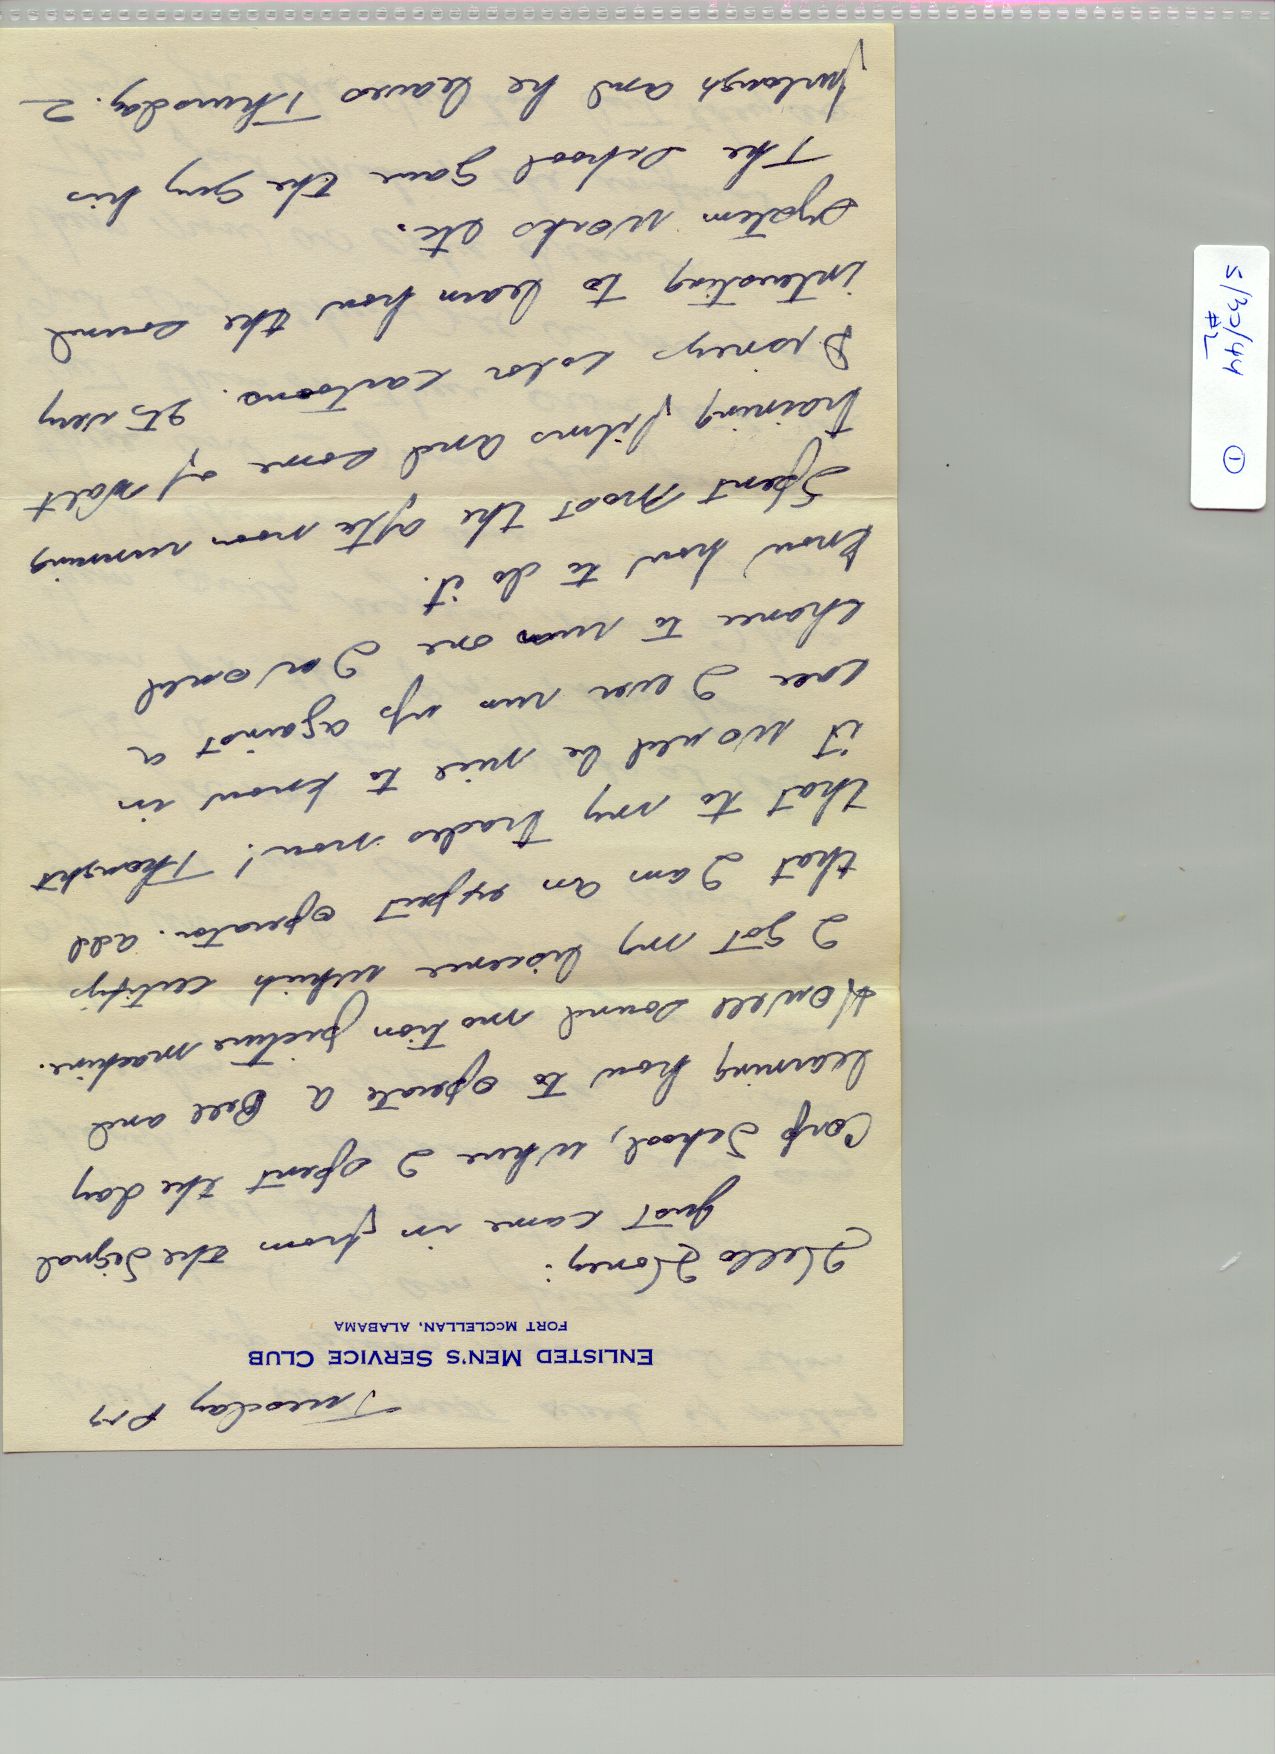 Tuesday PM
ENLISTED MEN'S SERVICE CLUB
FORT McCLELLAN, ALABAMA
Hello Honey:
Just came in from the Signal
Corp School, where I spent the day
learning how to operate a Bell and
Howell sound motion picture machine.
I got my liscence which certifys
that I am an expert operator. add
that to my trades now! Thought
it would be nice to know in
case I ever run up against a
chance to run one I would
know how to do it.
Spent most the afternoon running
training films and some of Walt
Disneys color cartoons. It very
interesting to learn how the sound
system works etc.
The school gave the guy his
furlough and he leaves Thursday. 2
5/30/44
#2
①